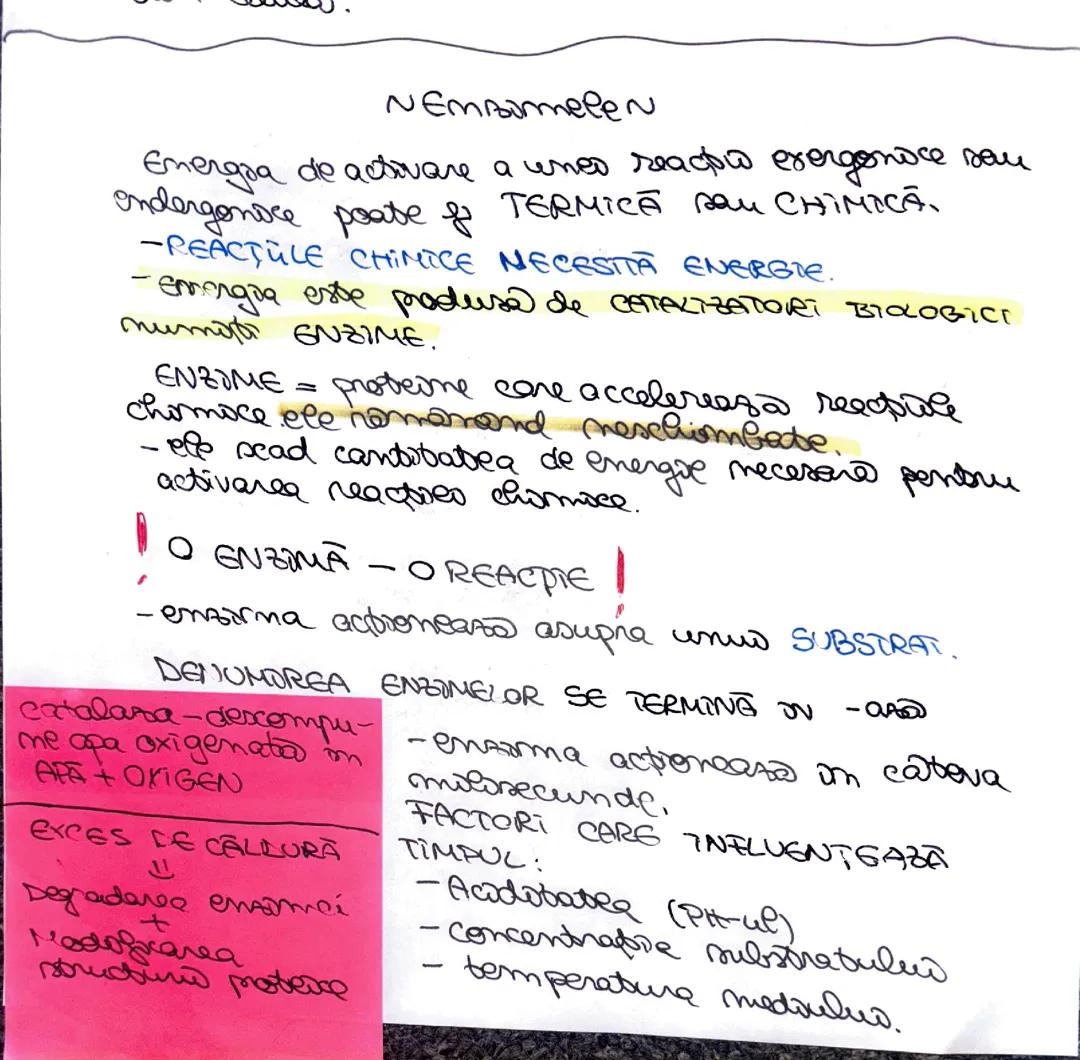 ~ Enzimele ~
Energia de activare a unei reacții exergonice sau
endergonice poate fi TERMICĂ sau CHIMICĂ.
- REACȚIILE CHIMICE NECESITĂ ENERGIE.
- energia este produsă de CATALIZATORI BIOLOGICI
numiți ENZIME.
ENZIME = proteine care accelerează reacțiile
chimice ele rămânând neschimbate.
- ele scad cantitatea de energie necesară pentru
activarea reacției chimice.
! O ENZIMĂ - O REACȚIE !
- enzima acționează asupra unui SUBSTRAT.
DENUMIREA ENZIMELOR SE TERMINĂ IN -ază
catalaza - descompu-
ne apa oxigenată în
APĂ + OXIGEN
EXCES DE CĂLDURĂ
=
Degradarea enzimei
+
Modificarea
structurii proteice
- enzima acționează în câteva
milisecunde.
FACTORI CARE INFLUENȚEAZĂ
TIMPUL:
- Aciditatea (PH-ul)
- concentrație substratului
- temperatura mediului.